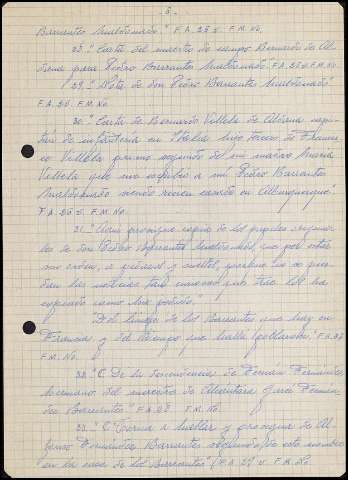 - 5 -
Barrantes Maldonado." F.A. 25 v. F.M. No.
28.- "Carta del maestro de campo Bernardo de Al-
dana para Pedro Barrantes Maldonado." F.A. 25 v. F.M. No.
29.- "Nota de don Pedro Barrantes Maldonado"
F.A. 26. F.M. No.
30.- "Carta de Bernardo Villela de Aldana capi-
tán de infantería en Italia hijo tercero de Francis-
co Villela primo segundo de mi madre María
Villela que me escribió a mi Pedro Barrantes
Maldonado siendo recien casado en Alburquerque"
F.A. 26 v. F.M. No.
31.- "Aqui prosigue copia de los papeles origina-
les de don Pedro Barrantes Maldonado, que por estar
sin orden, a pedazos y sueltos, porque no se pier-
dan las noticias tan curiosas que trae los ha
copiado como han podido."
"Del linaje de los Barrantes que hay en
Francia y del tiempo que halla poblaron." F.A. 27
F.M. No.
32.- "De la descendencia de Fernán Fernández
hermano del maestre de Alcántara Garci Fernán-
dez Barrantes." F.A. 28 F.M. No.
33.- "Torna a hablar y prosigue de Al-
fonso Fernández Barrantes segundo de este nombre
en la casa de los Barrantes" F.A. 29 v. F.M. No